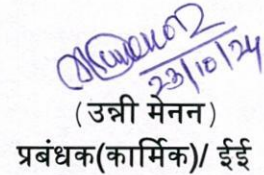 23/10/24
(उन्नी मेनन)
प्रबंधक(कार्मिक)/ ईई